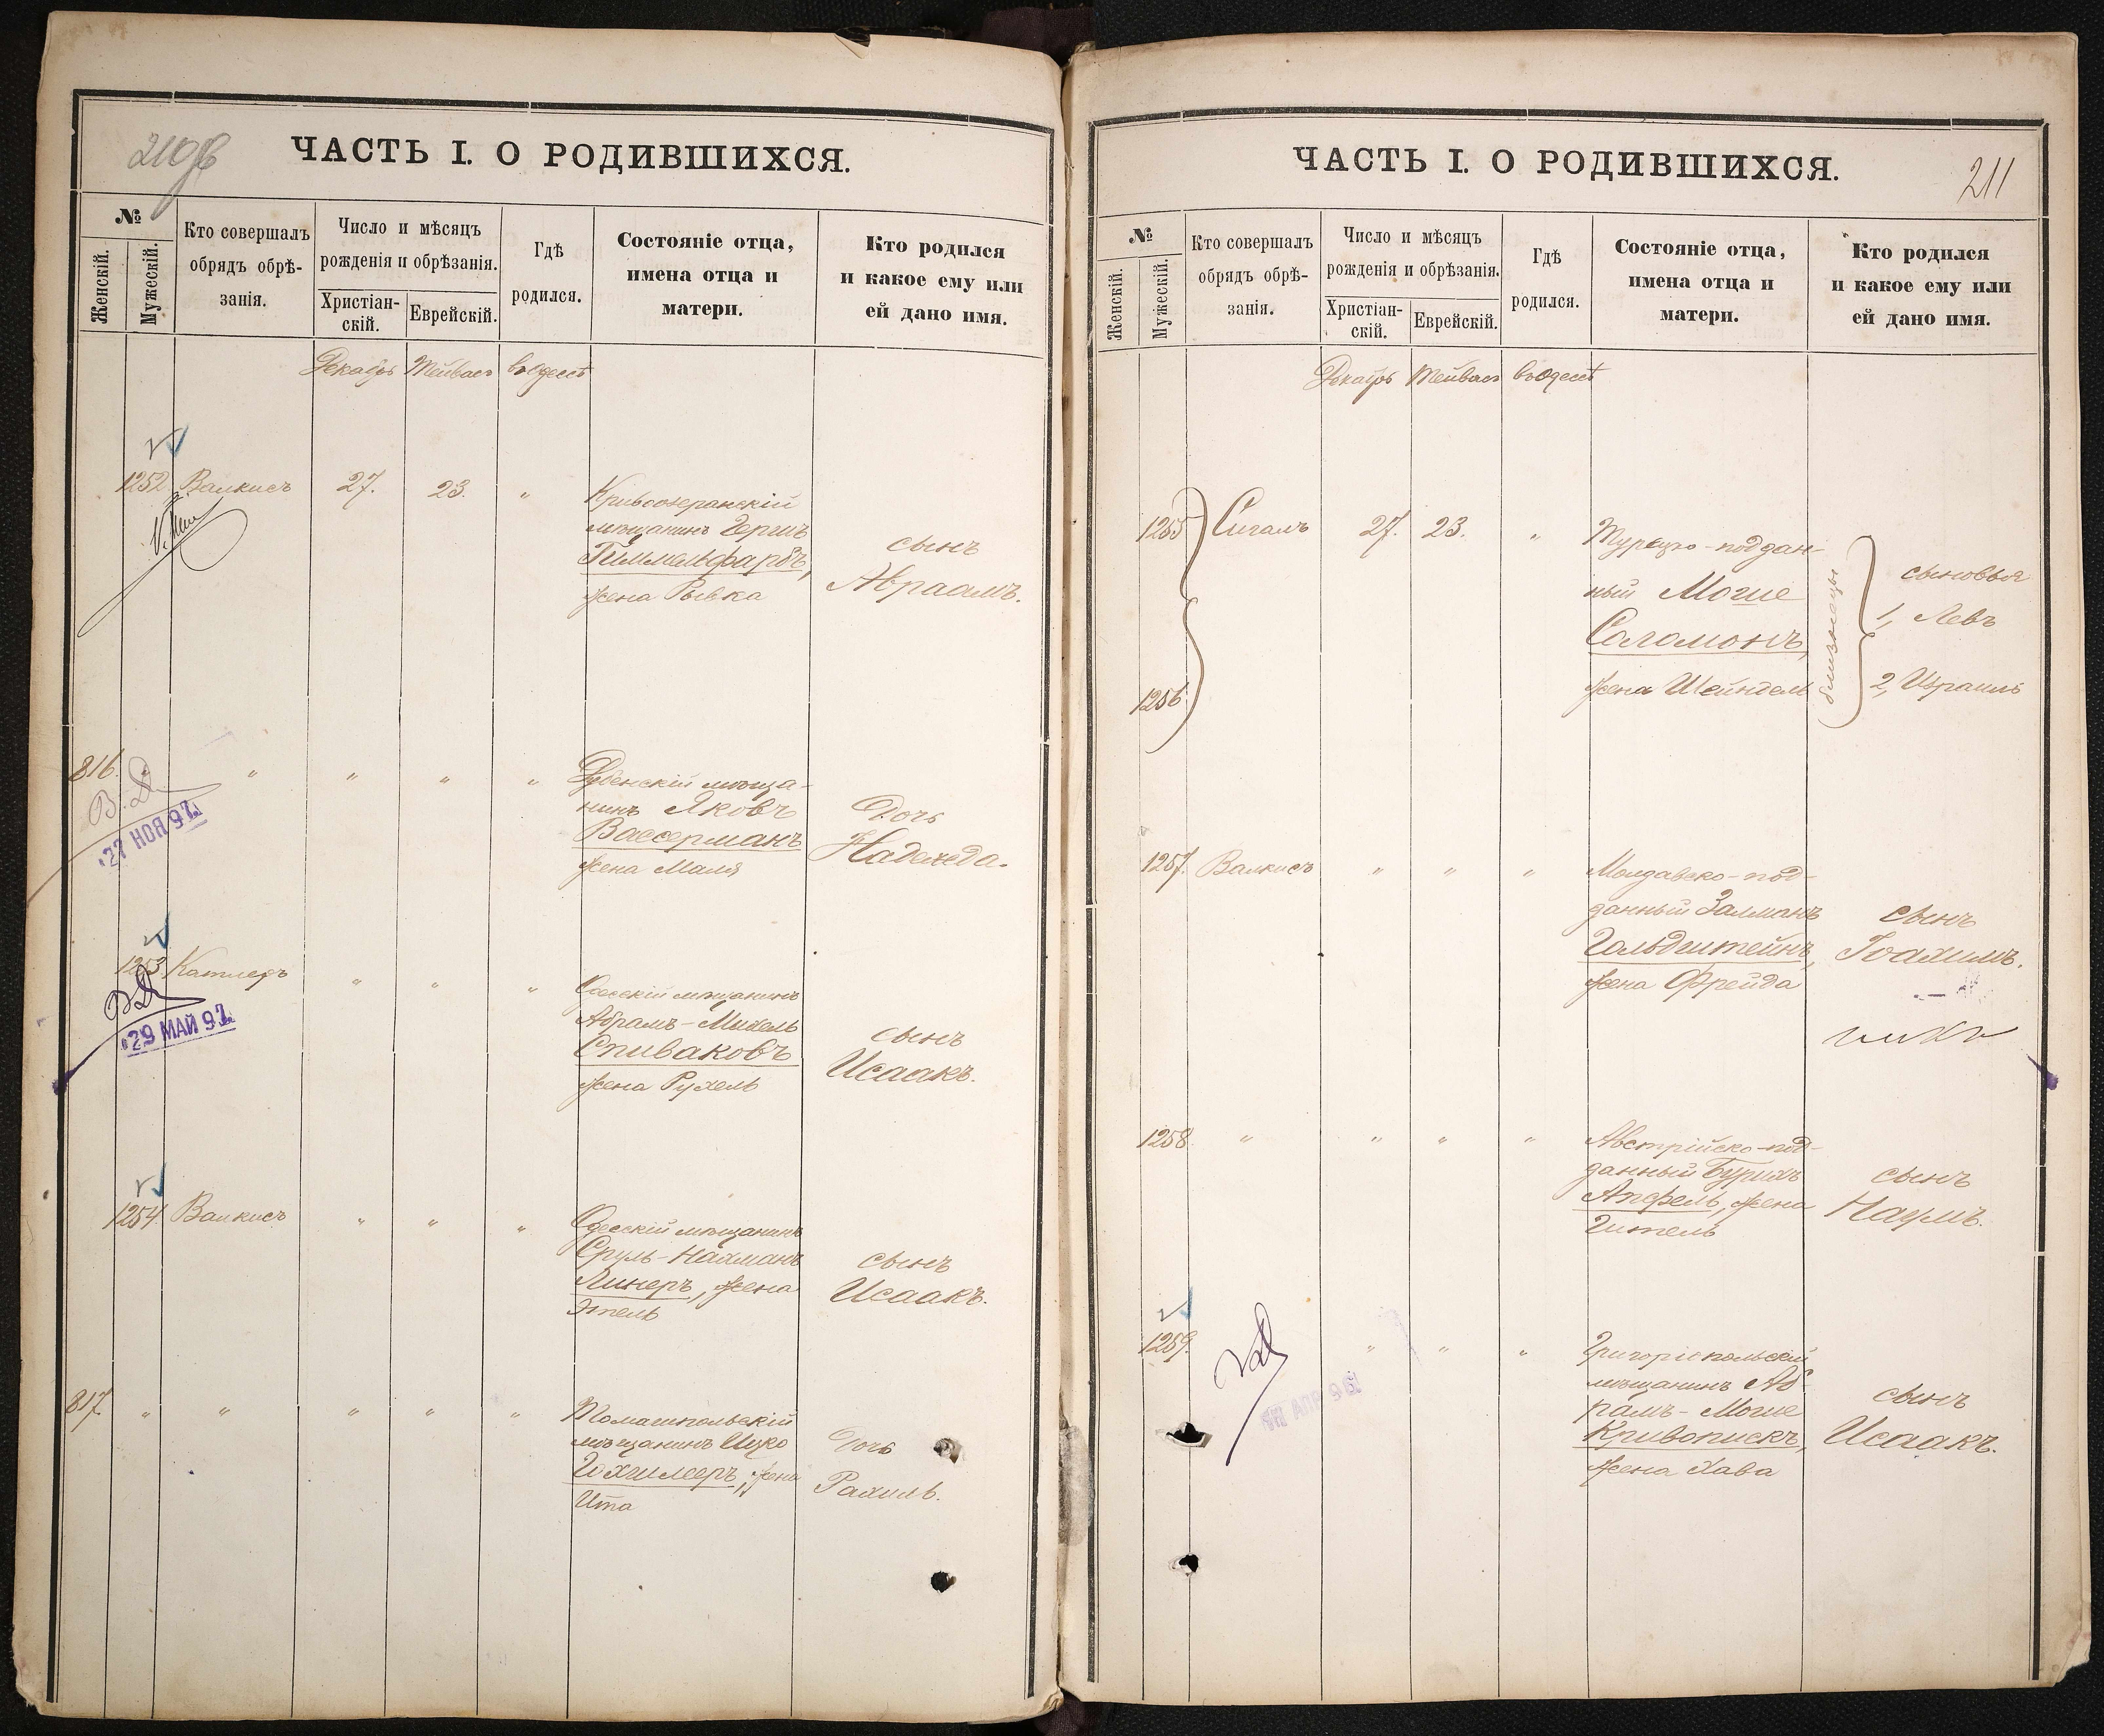 210 об
ЧАСТЬ I. О РОДИВШИХСЯ.
№
Женскій.
Мужескій.
Кто совершалъ
обрядъ обрѣ-
занія.
Число и мѣсяцъ
рожденія и обрѣзанія.
Христіан-
скій.
Еврейскій.
Гдѣ
родился.
Состояніе отца,
имена отца и
матери.
Кто родился
и какое ему или
ей дано имя.
Декабрь Тейвасъ въ Одессѣ
1252 Валкисъ 27. 23. "
Кривоозеранскій
мѣщанинъ Гершъ
Гиммельфарбъ,
жена Рывка
сынъ
Авраамъ.
816. " " " " "
Дубенскій мѣща-
нинъ Яковъ
Вассерманъ
жена Маля
Дочь
Надежда.
27 НОЯ 97
1253 Катлеръ " " "
Одесскій мѣщанинъ
Абрамъ-Михель
Спиваковъ
жена Рухель
сынъ
Исаакъ.
29 МАЙ 97
1254 Валкисъ " " "
Одесскій мѣщанинъ
Сруль-Нахманъ
Линеръ, жена
Этель
сынъ
Исаакъ.
817. " " " " "
Томашпольскій
мѣщанинъ Ицко
жена
Ита
Дочь
Рахиль.
211
ЧАСТЬ I. О РОДИВШИХСЯ.
№
Женскій.
Мужескій.
Кто совершалъ
обрядъ обрѣ-
занія.
Число и мѣсяцъ
рожденія и обрѣзанія.
Христіан-
скій.
Еврейскій.
Гдѣ
родился.
Состояніе отца,
имена отца и
матери.
Кто родился
и какое ему или
ей дано имя.
Декабрь Тейвасъ въ Одессѣ
1255 Сигалъ 27. 23. "
1256
Турецко-поддан-
ный Моше
Соломонъ,
жена Шейндель
близнецы
сыновья
1, Левъ
2, Израиль
1257. Валкисъ " " "
Молдавско-под-
данный Залманъ
Гольдштейнъ,
жена Фрейда
сынъ
Іоахимъ.
1258. " " " "
Австрійско-под-
данный Бурихъ
Апфель, жена
Гитель
сынъ
Наумъ.
1259. " " "
Григоріопольскій
мѣщанинъ Аб-
рамъ-Моше
Кривопискъ,
жена Хава
сынъ
Исаакъ.
АПР 96